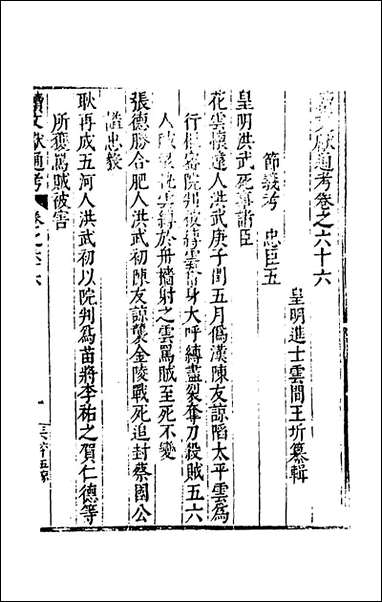 續文獻通考卷之六十六
皇明進士雲間王圻纂輯
節義考 忠臣五
皇明洪武死事諸臣
花雲懷遠人洪武庚子閏五月僞漢陳友諒陷太平雲爲
行樞密院判被縛雲奮身大呼縛盡裂奪刀殺賊五六
人賊雲縛於舟檣射之雲罵賊至死不變
張德勝合肥人洪武初陳友諒襲金陵戰死追封蔡國公
謚忠毅
耿再成五河人洪武初以院判爲苗將李祐之賀仁德等
所獲罵賊被害
續文獻通考 卷之六十六 一